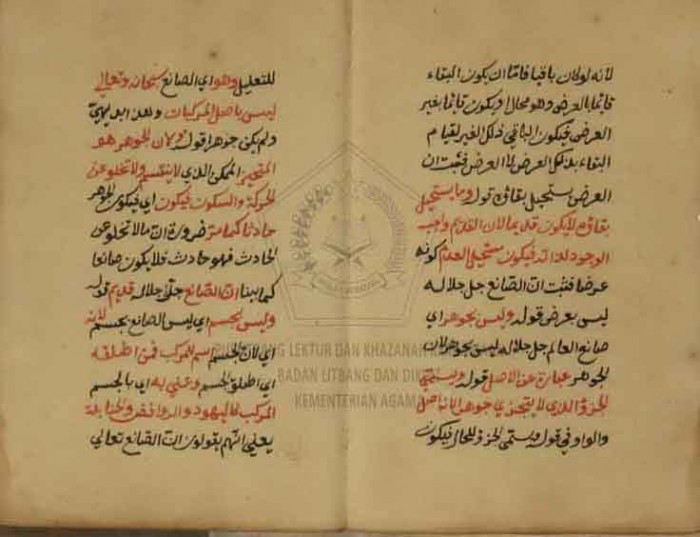 لانه لو كان باقيا فاما ان يكون البقاء
قائما بالعرض وهو محال او يكون قائما بغير
العرض فيكون الباقي ذلك الغير لقيام
البقاء بذلك العرض لا العرض فثبت ان
العرض يستحيل بقاؤه قوله وما يستحيل
بقاؤه لا يكون قديما لان القديم واجب
الوجود لذاته فيكون مستحيل العدم كونه
عرضا فثبت ان الصانع جل جلاله
ليس بعرض قوله وليس بجوهر اي
صانع العالم جل جلاله ليس بجوهر لان
الجوهر عبارة عن الاصل قوله ويسمى
الجزؤ الذي لا يتجزى جوهرا لانه اصل
والواو في قوله ويسمى الجزؤ للحال فيكون
للتعليل وهو اي الصانع سبحانه وتعالى
ليس باصل المركبات وهذا بديهي
ولم يكن جوهرا قوله ولان الجوهر هو
المتحيز الممكن الذي لا ينقسم ولا تخلو عن
الحركة والسكون فيكون اي فيكون الجوهر
حادثا كما مر ضرورة ان ما لا تخلو عن
الحادث فهو حادث فلا يكون صانعا
كما بينا ان الصانع جل جلاله قديم قوله
وليس بجسم اي ليس الصانع بجسم لانه
اي لان الجسم اسم للمركب فمن اطلقه
اي اطلق الجسم وعني به اي بالجسم
المركب كاليهود والروافض والحنابلة
يعني انهم يقولون ان الصانع تعالي
PUSLITBANG LEKTUR DAN KHAZANAH
BADAN LITBANG DAN DIKLAT
KEMENTERIAN AGAMA